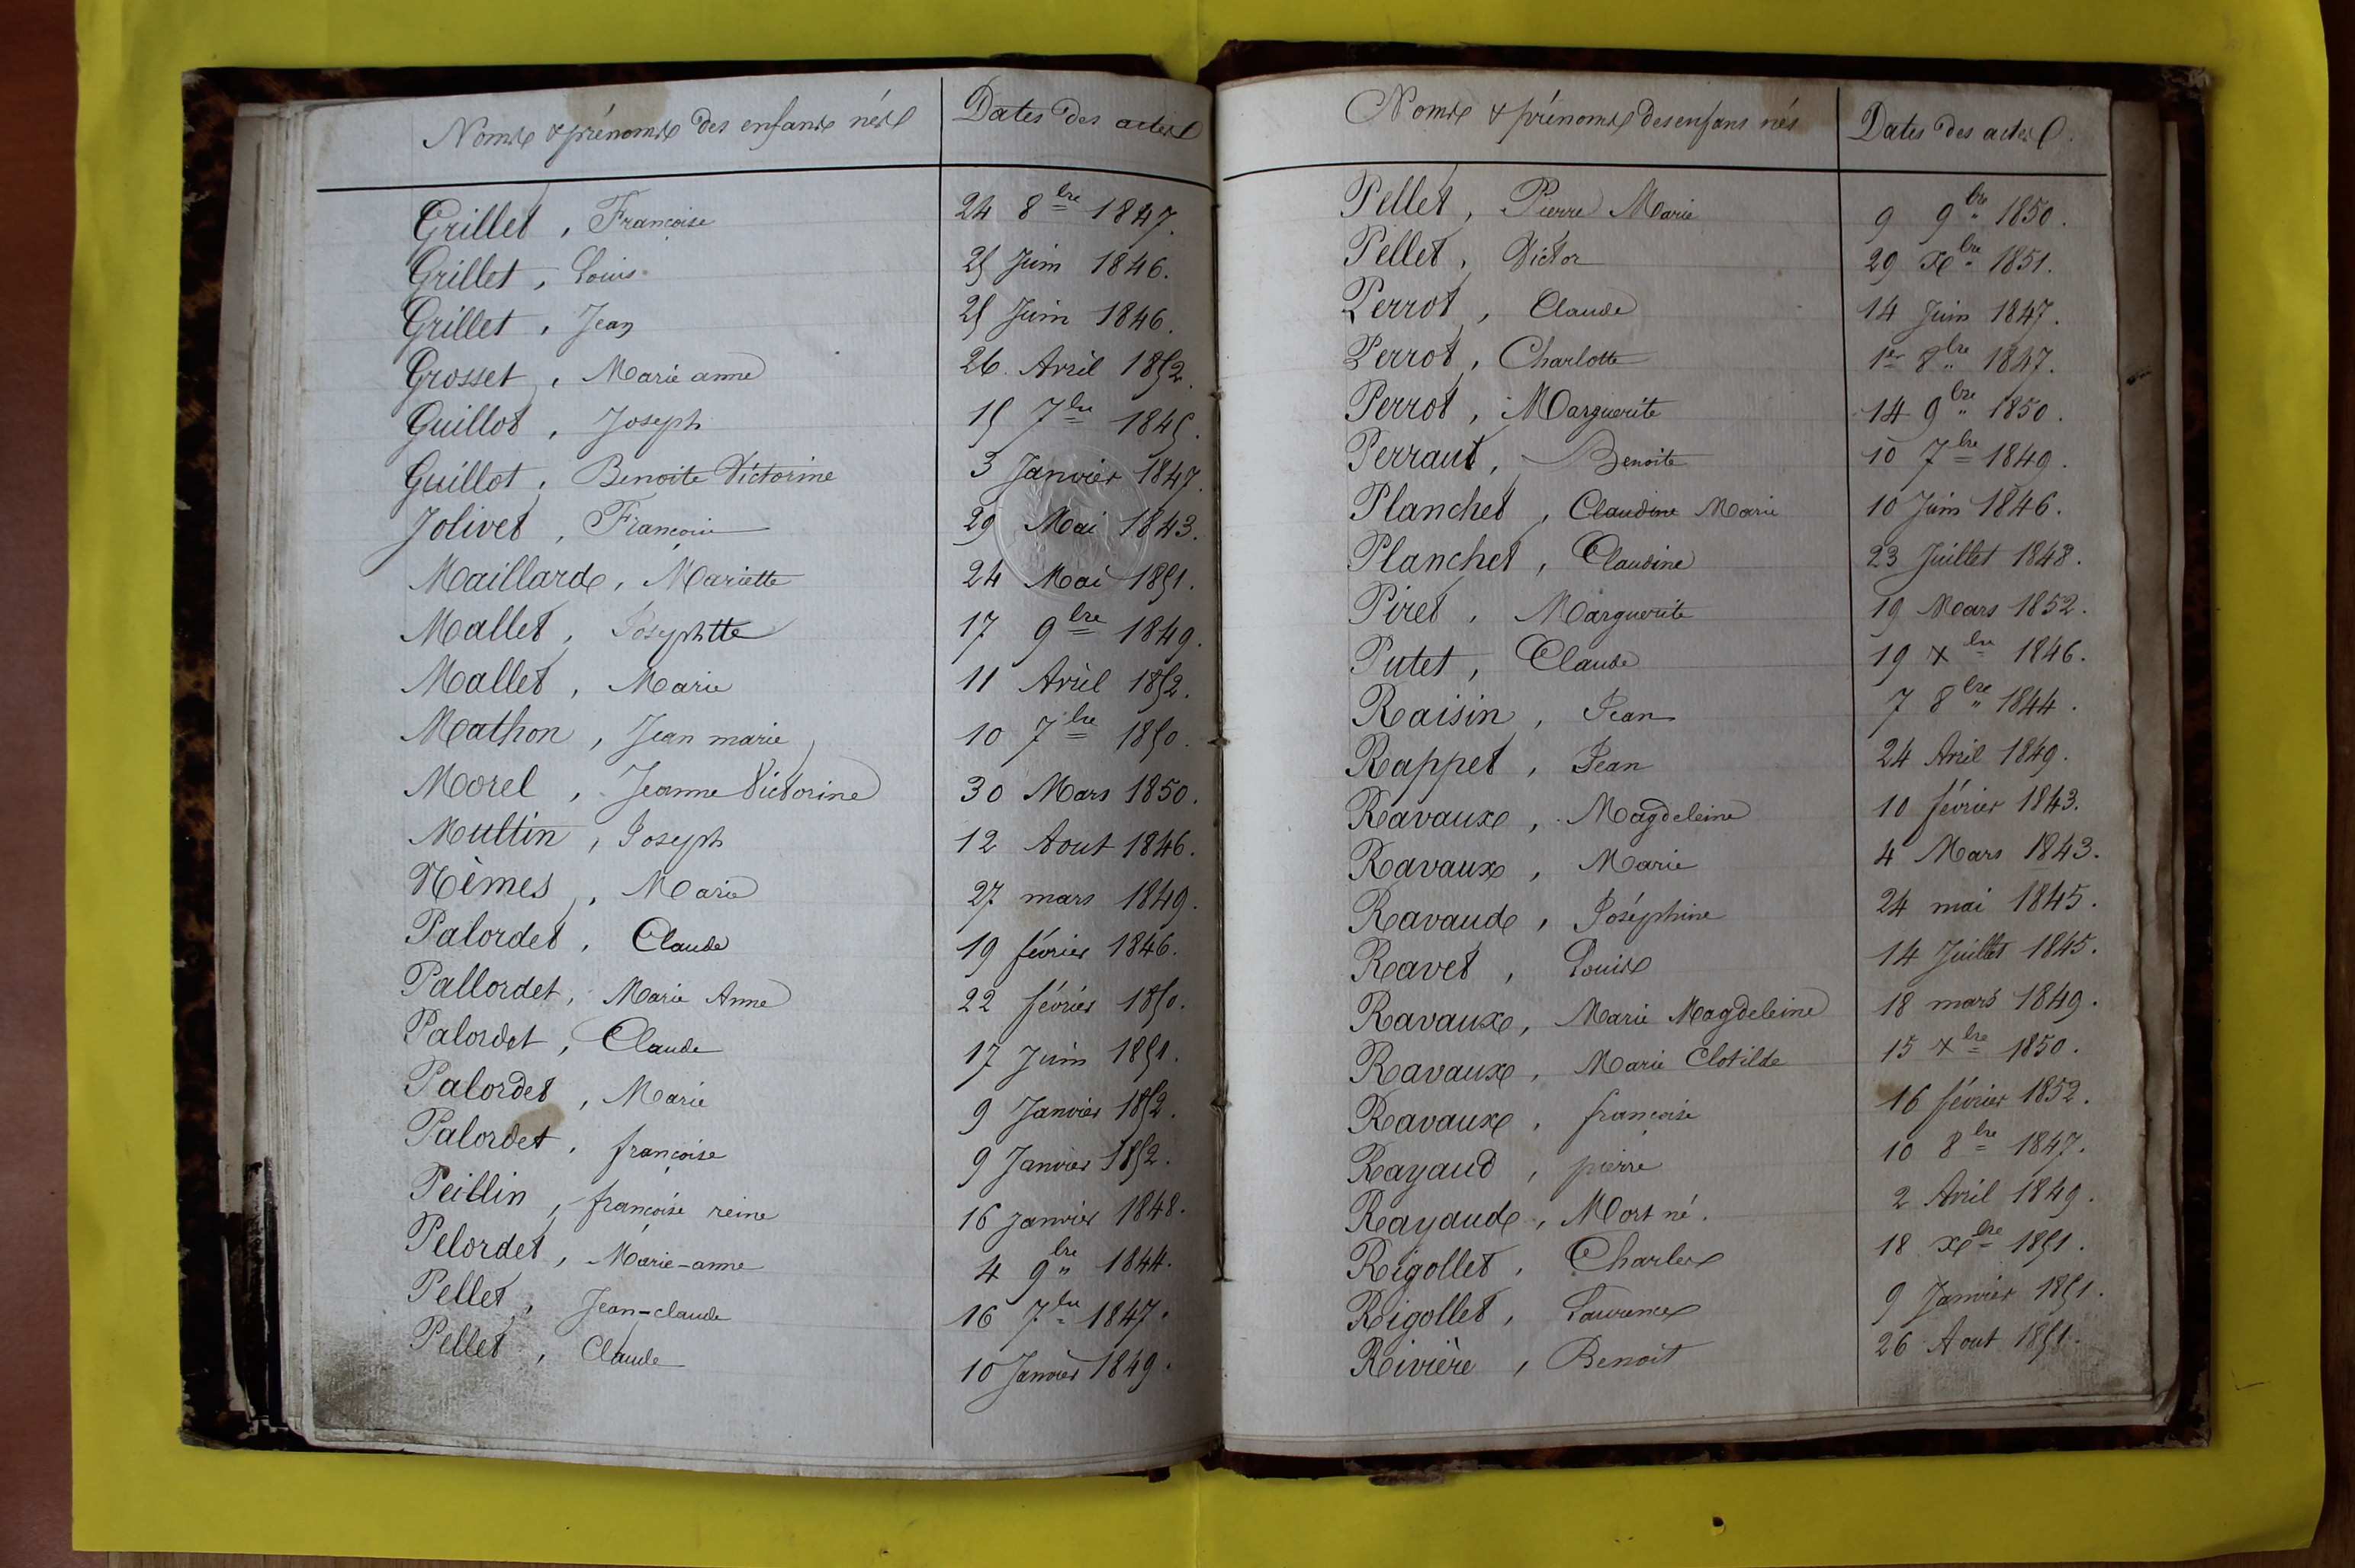 Noms & prénoms des enfants nés Dates des actes
Grillet, Françoise 24 8bre 1847.
Grillet, Louis 25 Juin 1846.
Grillet, Jean 25 Juin 1846.
Grosset, Marie anne 26 Avril 1852.
Guillot, Joseph 15 7bre 1845.
Guillot, Benoite Victorine 3 Janvier 1847.
Jolivet, François 29 Mai 1843.
Maillard, Mariette 24 Mai 1851.
Mallet, Josephtte 17 9bre 1849.
Mallet, Marie 11 Avril 1852.
Mathon, Jean marie 10 7bre 1850.
Morel, Jeanne Victorine 30 Mars 1850.
Multin, Joseph 12 Aout 1846.
Nèmes, Marie 27 mars 1849.
Palordet, Claude 19 février 1846.
Pallordet, Marie Anne 22 février 1850.
Palordet, Claude 17 Juin 1851.
Palordet, Marie 9 Janvier 1852.
Palordet, françoise 9 Janvier 1852.
Peillin, françoise reine 16 janvier 1848.
Pelordet, Marie-anne 4 9bre 1844.
Pellet, Jean-claude 16 7bre 1847.
Pellet, Claude 10 Janvier 1849.
Noms & prénoms des enfans nés Dates des actes.
Pellet, Pierre Marie 9 9bre 1850.
Pellet, Victor 29 Xbre 1851.
Perrot, Claude 14 Juin 1847.
Perrot, Charlotte 1er 8bre 1847.
Perrot, Marguerite 14 9bre 1850.
Perraut, Benoite 10 7bre 1849.
Planchet, Claudine Marie 10 Juin 1846.
Planchet, Claudine 23 Juillet 1848.
Piret, Marguerite 19 Mars 1852.
Putet, Claude 19 Xbre 1846.
Raisin, Jean 7 8bre 1844.
Rappet, Jean 24 Avril 1849.
Ravaux, Magdeleine 10 février 1843.
Ravaux, Marie 4 Mars 1843.
Ravaud, Joséphine 24 mai 1845.
Ravet, Louis 14 Juillet 1845.
Ravaux, Marie Magdeleine 18 mars 1849.
Ravaux, Marie Clotilde 15 Xbre 1850.
Ravaux, françoise 16 février 1852.
Rayaud, pierre 10 8bre 1847.
Rayaud, Mort né. 2 Avril 1849.
Rigollet, Charles 18 Xbre 1851.
Rigollet, Laurence 9 Janvier 1851.
Rivière, Benoit 26 Aout 1851.